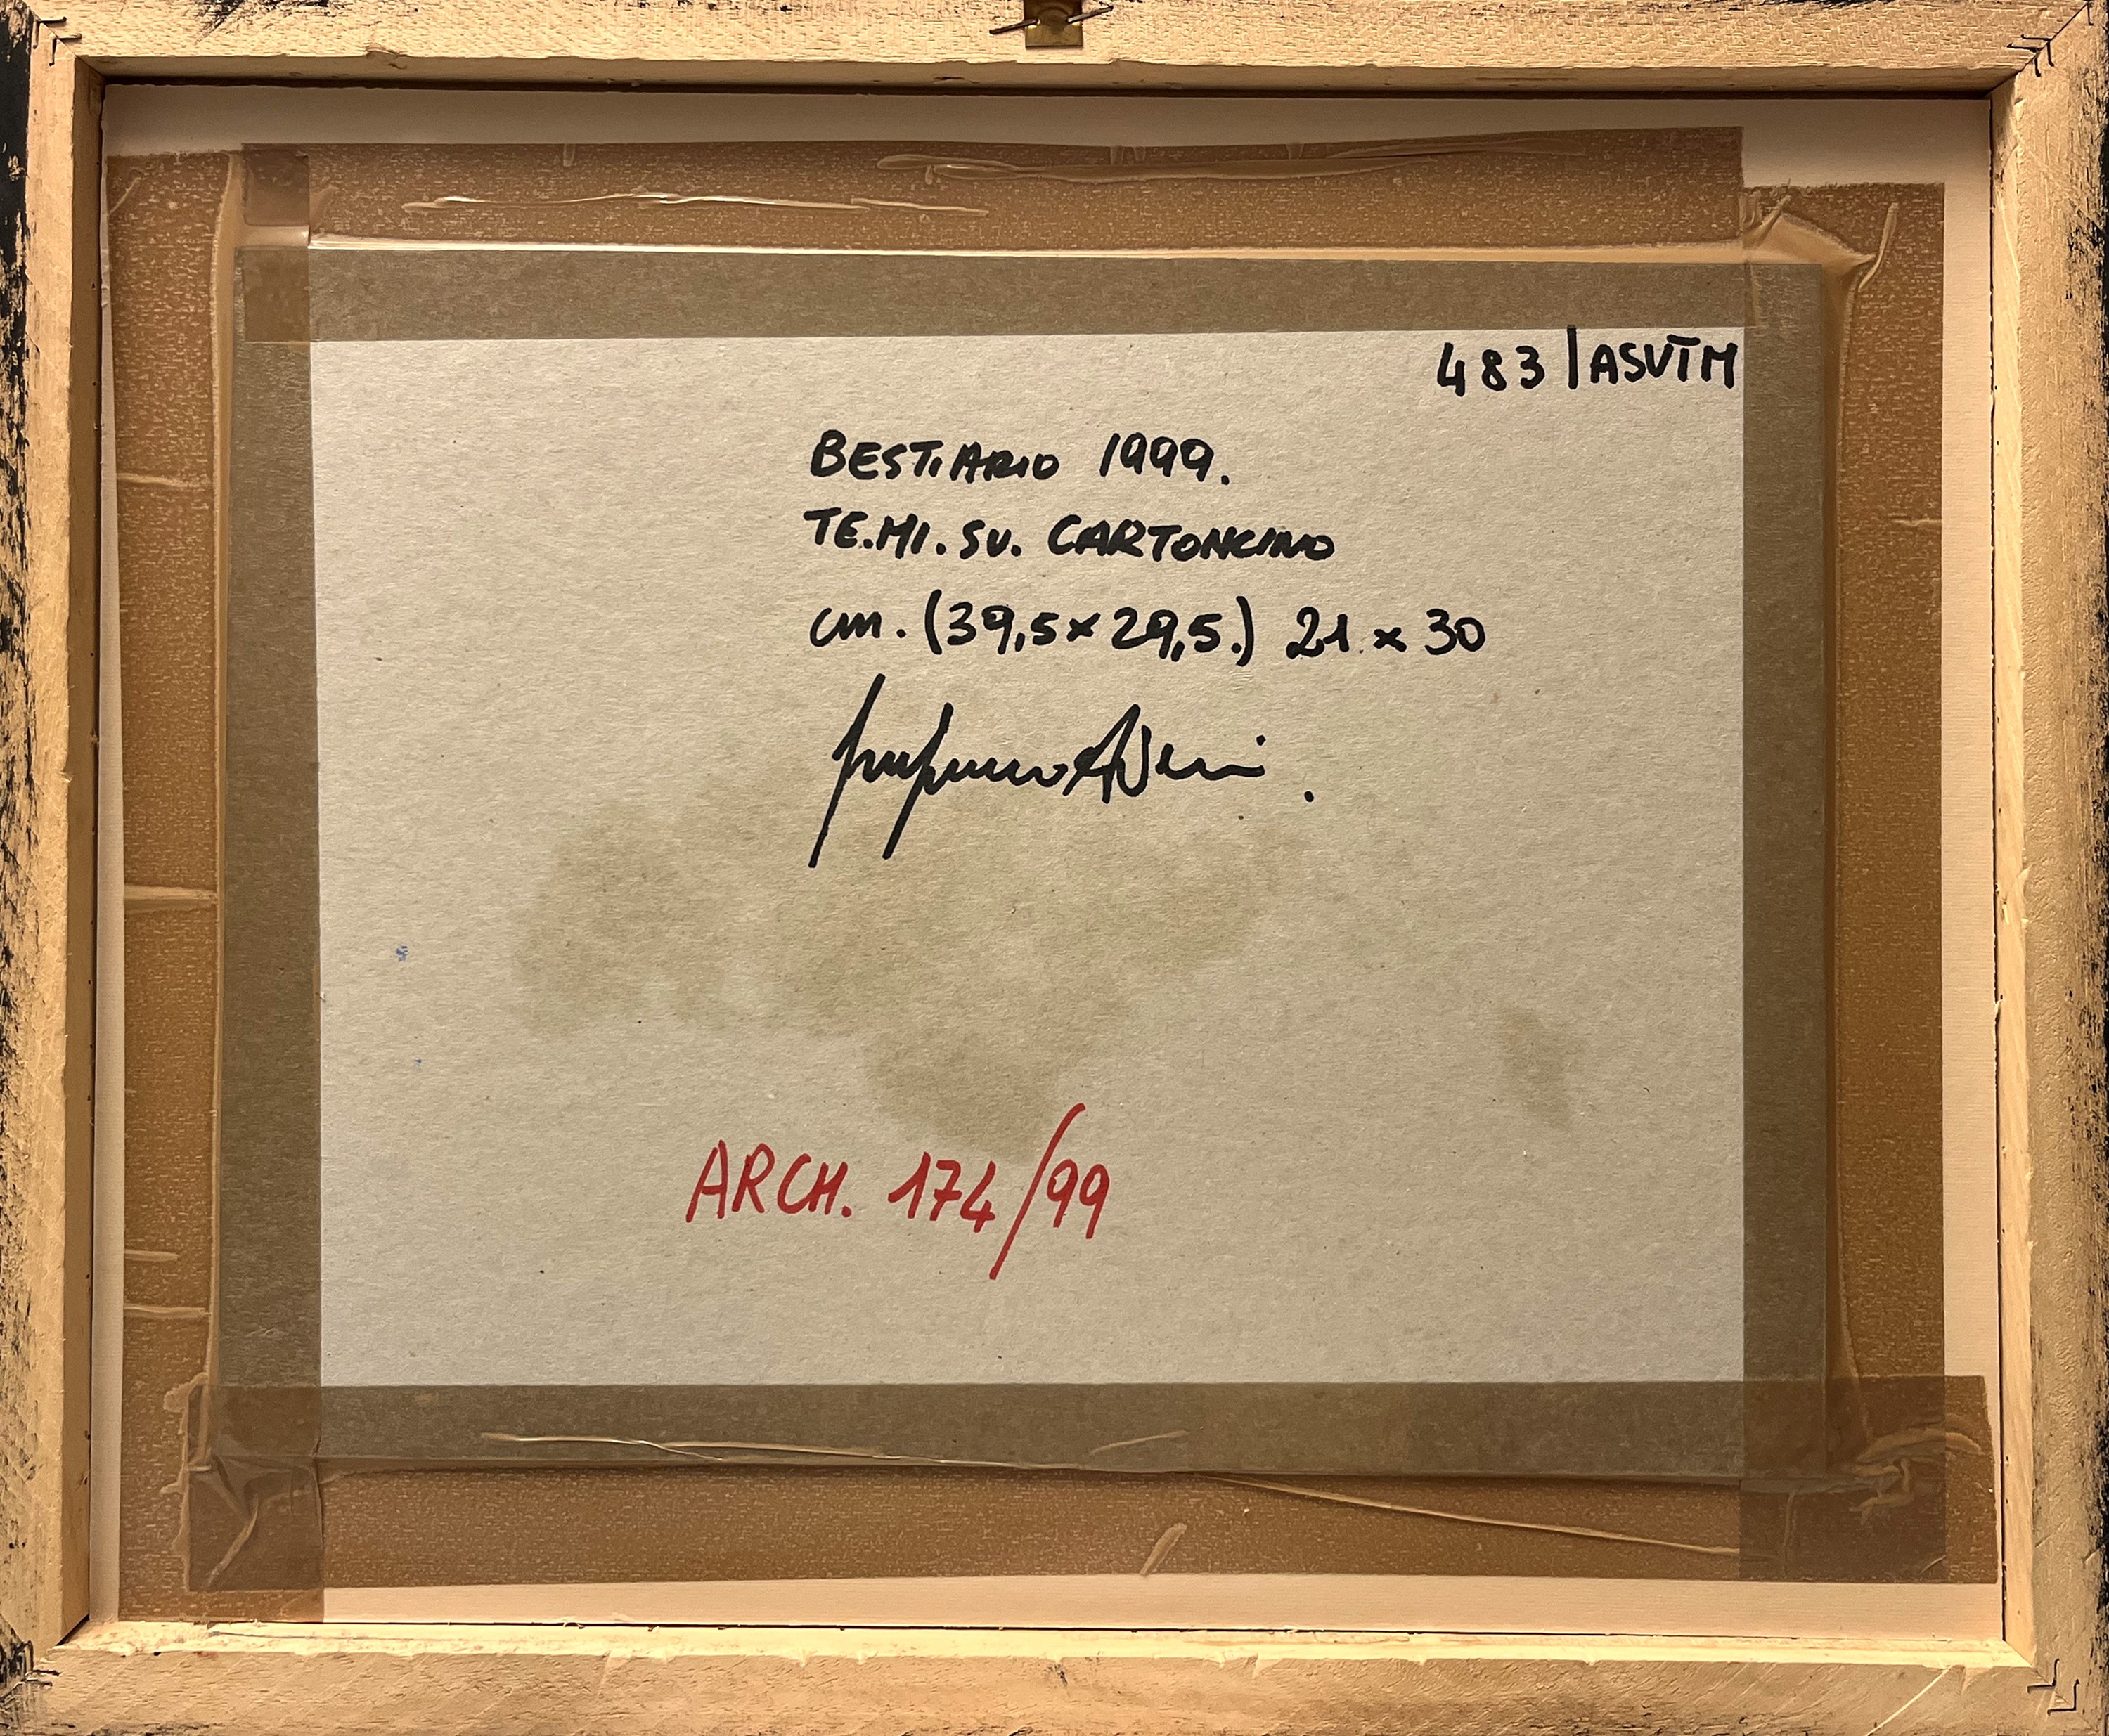 483 | ASVTM
BESTIARIO 1999.
TE.MI. SU. CARTONCINO
cm. (39,5 x 29,5.) 21 x 30
ARCH. 174/99